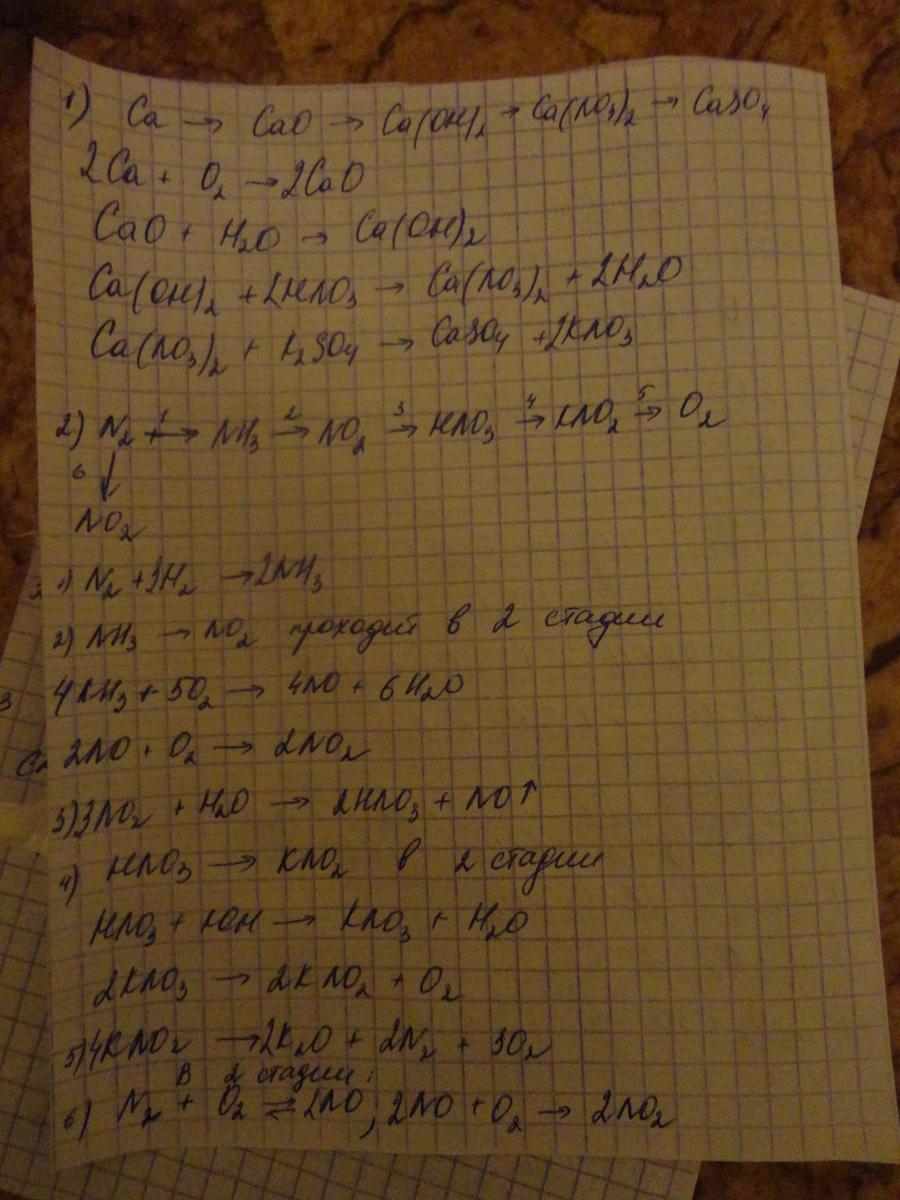 1) Ca → CaO → Ca(OH)2 → Ca(NO3)2 → CaSO4
2Ca + O2 → 2CaO
CaO + H2O → Ca(OH)2
Ca(OH)2 + 2HNO3 → Ca(NO3)2 + 2H2O
Ca(NO3)2 + K2SO4 → CaSO4 + 2KNO3
2) N2 1→ NH3 2→ NO2 3→ HNO3 4→ KNO2 5→ O2
6 ↓
NO2
1) N2 + 3H2 → 2NH3
2) NH3 → NO2 проходит в 2 стадии
4NH3 + 5O2 → 4NO + 6H2O
2NO + O2 → 2NO2
3) 3NO2 + H2O → 2HNO3 + NO↑
4) HNO3 → KNO2 в 2 стадии
HNO3 + KOH → KNO3 + H2O
2KNO3 → 2KNO2 + O2
5) 4KNO2 → 2K2O + 2N2 + 3O2
В 2 стадии:
6) N2 + O2 ⇌ 2NO, 2NO + O2 → 2NO2